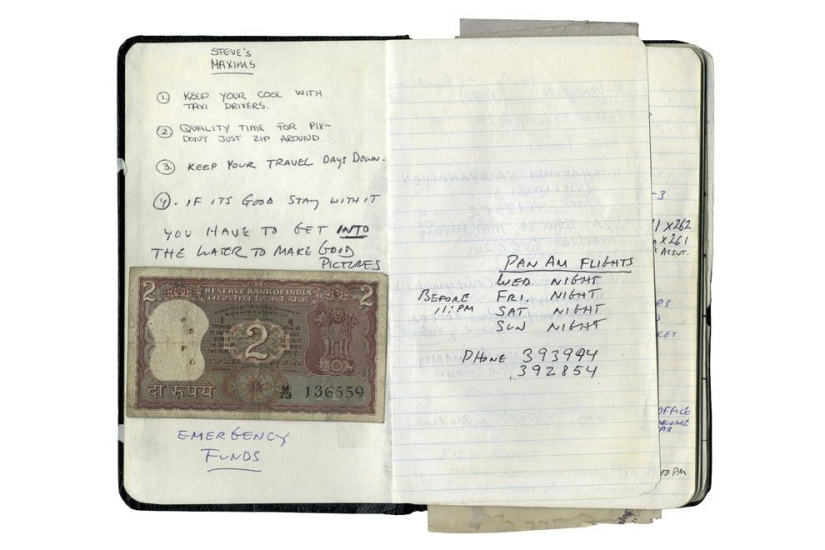 STEVE'S
MAXIMS
1. KEEP YOUR COOL WITH
TAXI DRIVERS.
2 QUALITY TIME FOR PIX-
DON'T JUST ZIP AROUND.
3. KEEP YOUR TRAVEL DAYS DOWN.
4. IF ITS GOOD STAY WITH IT
YOU HAVE TO GET INTO
THE WATER TO MAKE GOOD
PICTURES
2 RESERVE BANK OF INDIA 2
2
दो रुपये M/73 136559
EMERGENCY
FUNDS
PAN AM FLIGHTS
WED NIGHT
BEFORE FRI. NIGHT
11:PM SAT NIGHT
SUN NIGHT
PHONE 393994
392854
-3
1 x262
x261
ASSIST.
RS
KET
OFFICE
PM